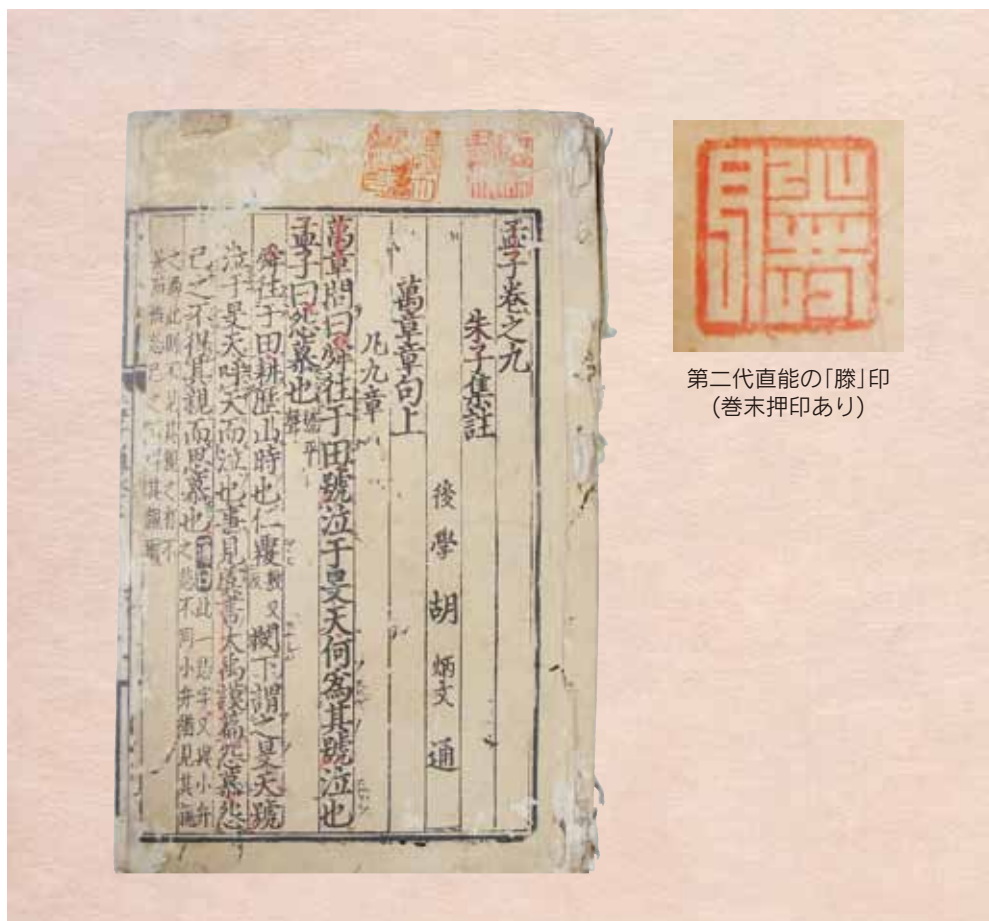 孟子卷之九
朱子集註
後學胡炳文通
萬章章句上
凡九章
萬章問曰舜往于田號泣于旻天何為其號泣也
孟子曰怨慕也號平聲
舜往于田耕歷山時也仁覆敷又反閔下謂之旻天號
泣于旻天呼天而泣也事見虞書大禹謨篇怨慕怨
己之不得其親而思慕也通曰此一怨字又與小弁
之怨不同小弁猶見其親
第二代直能の「滕」印
(巻末押印あり)